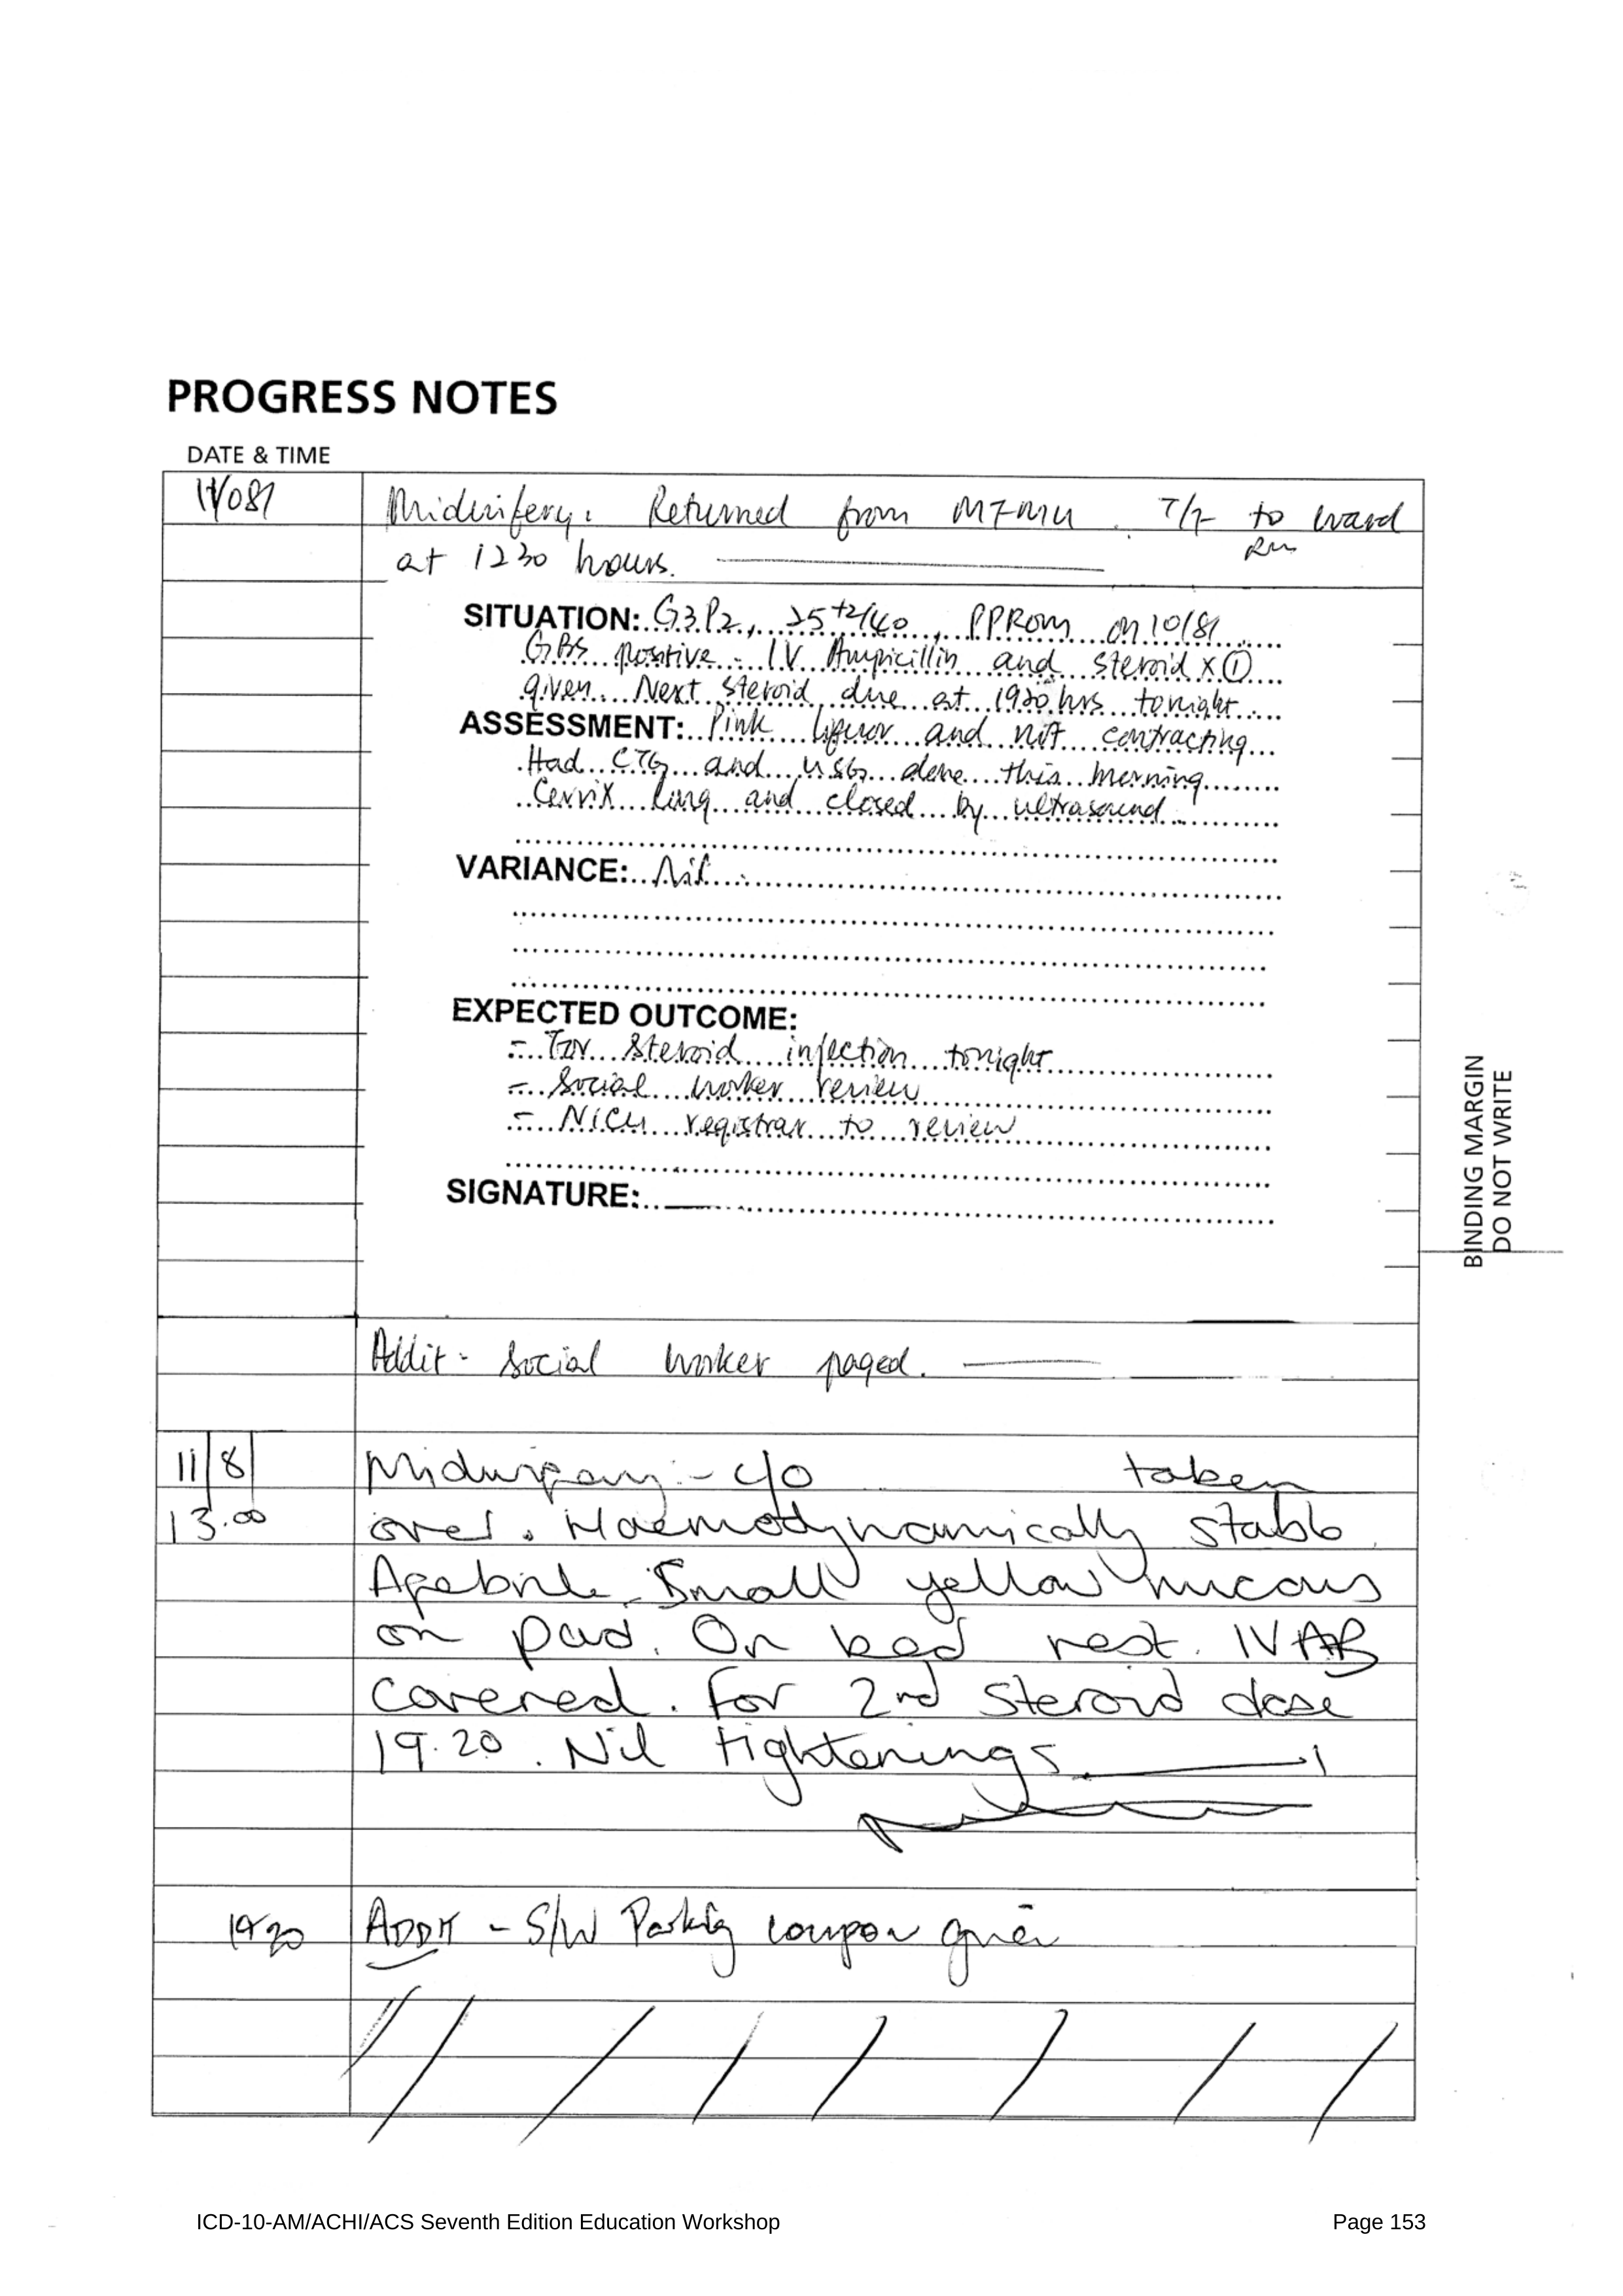 PROGRESS NOTES
DATE & TIME
11/08/ Midwifery: Returned from MFMU. T/F to ward
at 1230 hours. RM
SITUATION: G3P2, 25+2/40, PPROM on 10/8/
GBS positive - I.V Ampicillin and steroid x ①
given. Next steroid due at 1920 hrs tonight
ASSESSMENT: Pink liquor and not contracting
Had CTG and USG done this morning
Cervix long and closed by ultrasound
VARIANCE: Nil
EXPECTED OUTCOME:
- For steroid injection tonight
- Social worker review
- NICU registrar to review
SIGNATURE:
BINDING MARGIN
DO NOT WRITE
Addit - Social worker paged.
11/8/ Midwifery - c/o taken
13.00 over. Haemodynamically stable
Afebrile. Small yellow mucous
on pad. On bed rest. IVAB
covered. For 2nd steroid dose
19.20. Nil tightenings
1920 ADDIT - S/W Parking coupon given
ICD-10-AM/ACHI/ACS Seventh Edition Education Workshop Page 153